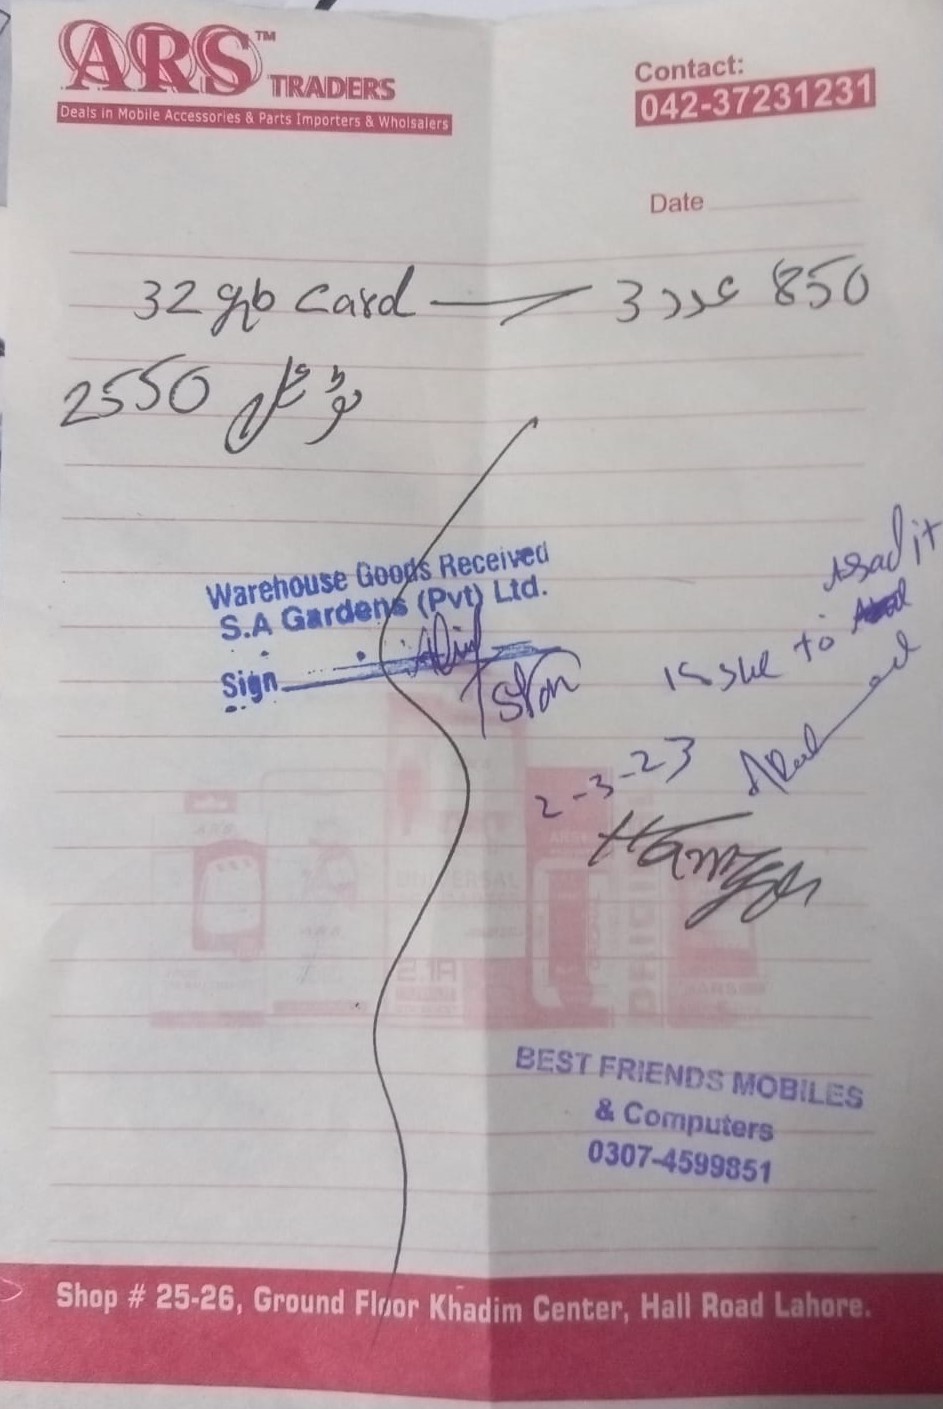 ARS™ TRADERS
Deals in Mobile Accessories & Parts Importers & Wholsalers
Contact:
042-37231231
Date
32 gb Card 3 عدد 850
2550 ٹوٹل
Warehouse Goods Received
S.A Gardens (Pvt) Ltd.
Sign
Asad it
Issue to
2-3-23
Hamza
BEST FRIENDS MOBILES
& Computers
0307-4599851
Shop # 25-26, Ground Floor Khadim Center, Hall Road Lahore.